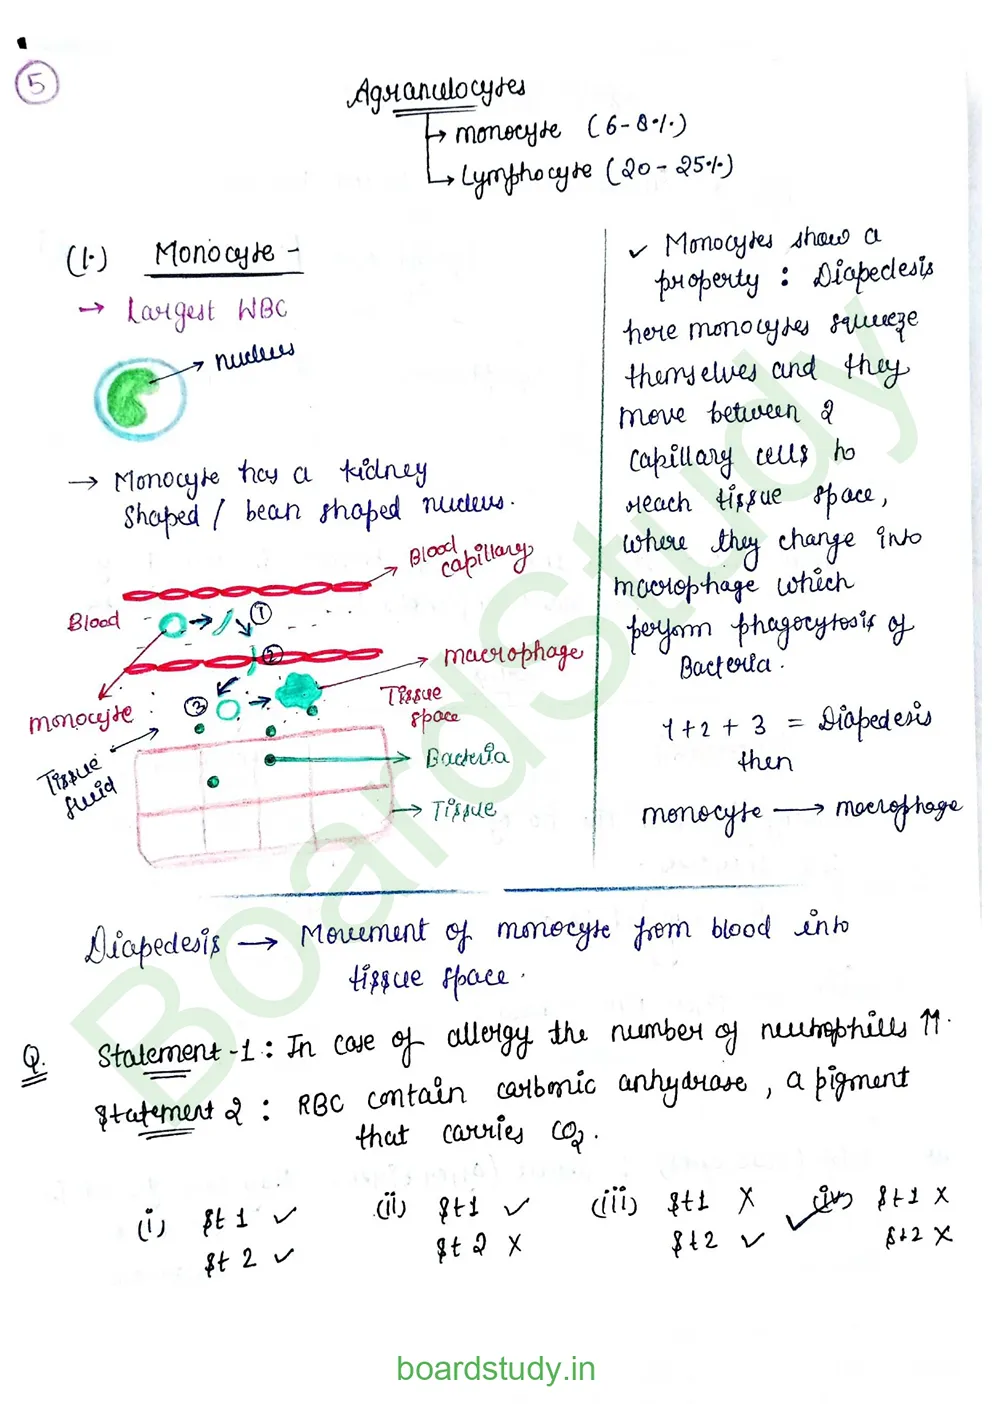 5
Agranulocytes
→ monocyte (6-8%)
→ Lymphocyte (20-25%)
(1.) Monocyte -
→ Largest WBC
→ nucleus
→ Monocyte has a kidney
shaped / bean shaped nucleus.
Blood capillary
Blood
1
2
macrophage
3
monocyte
Tissue space
Tissue fluid
Bacteria
Tissue
✓ Monocytes show a
property : Diapedesis
here monocytes squeeze
themselves and they
move between 2
capillary cells to
reach tissue space,
where they change into
macrophage which
perform phagocytosis of
Bacteria.
1+2+3 = Diapedesis
then
monocyte → macrophage
Diapedesis → Movement of monocyte from blood into
tissue space.
Q. Statement-1 : In case of allergy the number of neutrophills ↑↑.
Statement 2 : RBC contain carbonic anhydrase, a pigment
that carries CO2.
(i) St 1 ✓ (ii) St1 ✓ (iii) St1 X ✓(iv) St1 X
St 2 ✓ St 2 X St2 ✓ St2 X
BoardStudy
boardstudy.in